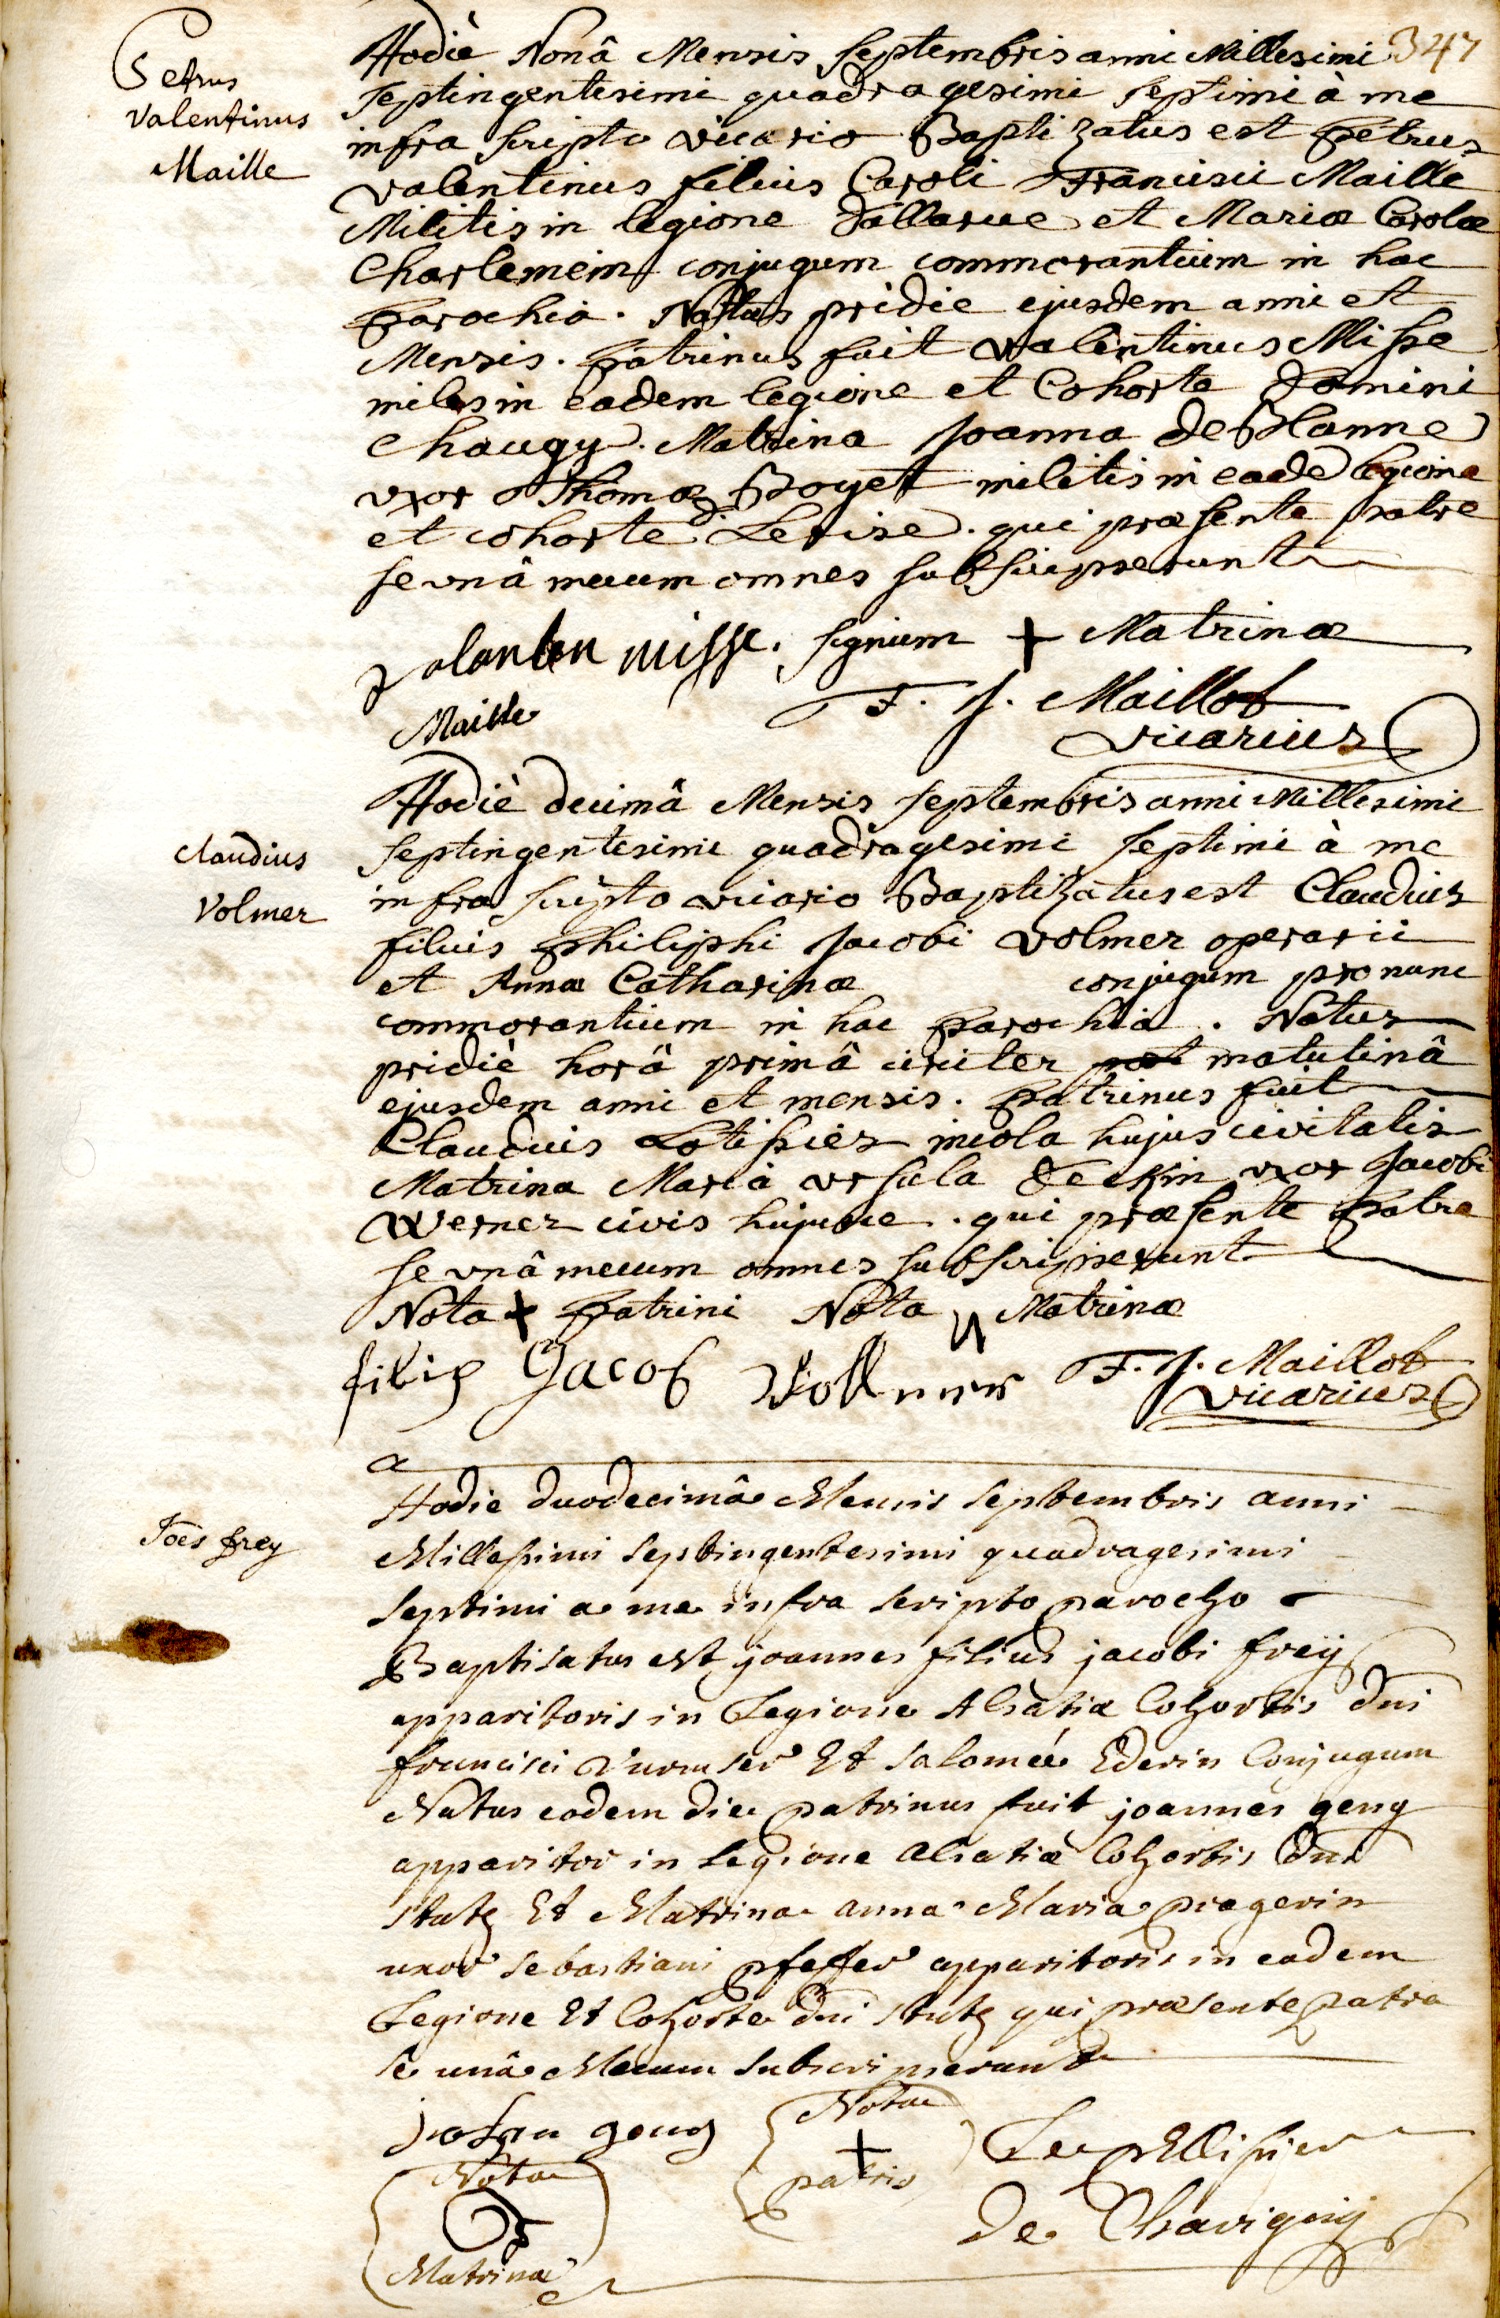 347
Petrus
Valentinus
Maille
Hodiè Nonâ Mensis Septembris anni Millesimi
septingentesimi quadragesimi septimi à me
infra scripto vicario Baptizatus est petrus
valentinus filius Caroli Francisci Maille
Militis in legione Dallarue et Mariæ Carolæ
Charlemein conjugum commorantium in hac
parochia. Natus pridie ejusdem anni et
Mensis. patrinus fuit valentinus Misse
miles in eadem legione et Cohorte Domini
Chaugy. Matrina Joanna de Blanne
uxor Thomæ Boyet militis in eadē legione
et cohorte d. Lerise. qui præsente patre
se unâ mecum omnes subscripserunt
valanten misse. signum + Matrinæ
Maille
F. J. Maillot
vicarius
Claudius
Volmer
Hodiè decimâ Mensis septembris anni Millesimi
septingentesimi quadragesimi septimi à me
infra scripto vicario Baptizatus est Claudius
filius philiphi Jacobi volmer operarii
et Annæ Catharinæ conjugum pro nunc
commorantium in hac parochia. Natus
pridiè horâ primâ circiter matutinâ
ejusdem anni et mensis. patrinus fuit
Claudius Lotissier incola hujus civitatis
Matrina Maria ursula Deckin uxor Jacobi
Werner civis hujusce. qui præsente patre
se unâ mecum omnes subscripserunt
Nota + patrini Nota Matrinæ
filip Jacob Vollmer F. J. Maillot
vicarius
Joēs frey
Hodie duodecimâ Mensis septembris anni
Millesimi septingentesimi quadragesimi
septimi a me infra scripto parocho
Baptisatus est joannes filius jacobi freij
apparitoris in Legione Alsatiæ Cohortis dni
francisci Wurmser Et salomeæ Ederin Conjugum
Natus eodem die patrinus fuit joannes geng
apparitor in Legione alsatiæ Cohortis dni
stutz Et Matrina anna Maria progerin
uxor sebastiani pfeffer apparitoris in eadem
Legione Et Cohorte dni stutz qui præsente patre
se unâ Mecum subscripserunt
johan geng
Nota
+
patris
Le pellissier
de Chavignij
Nota
Matrinæ